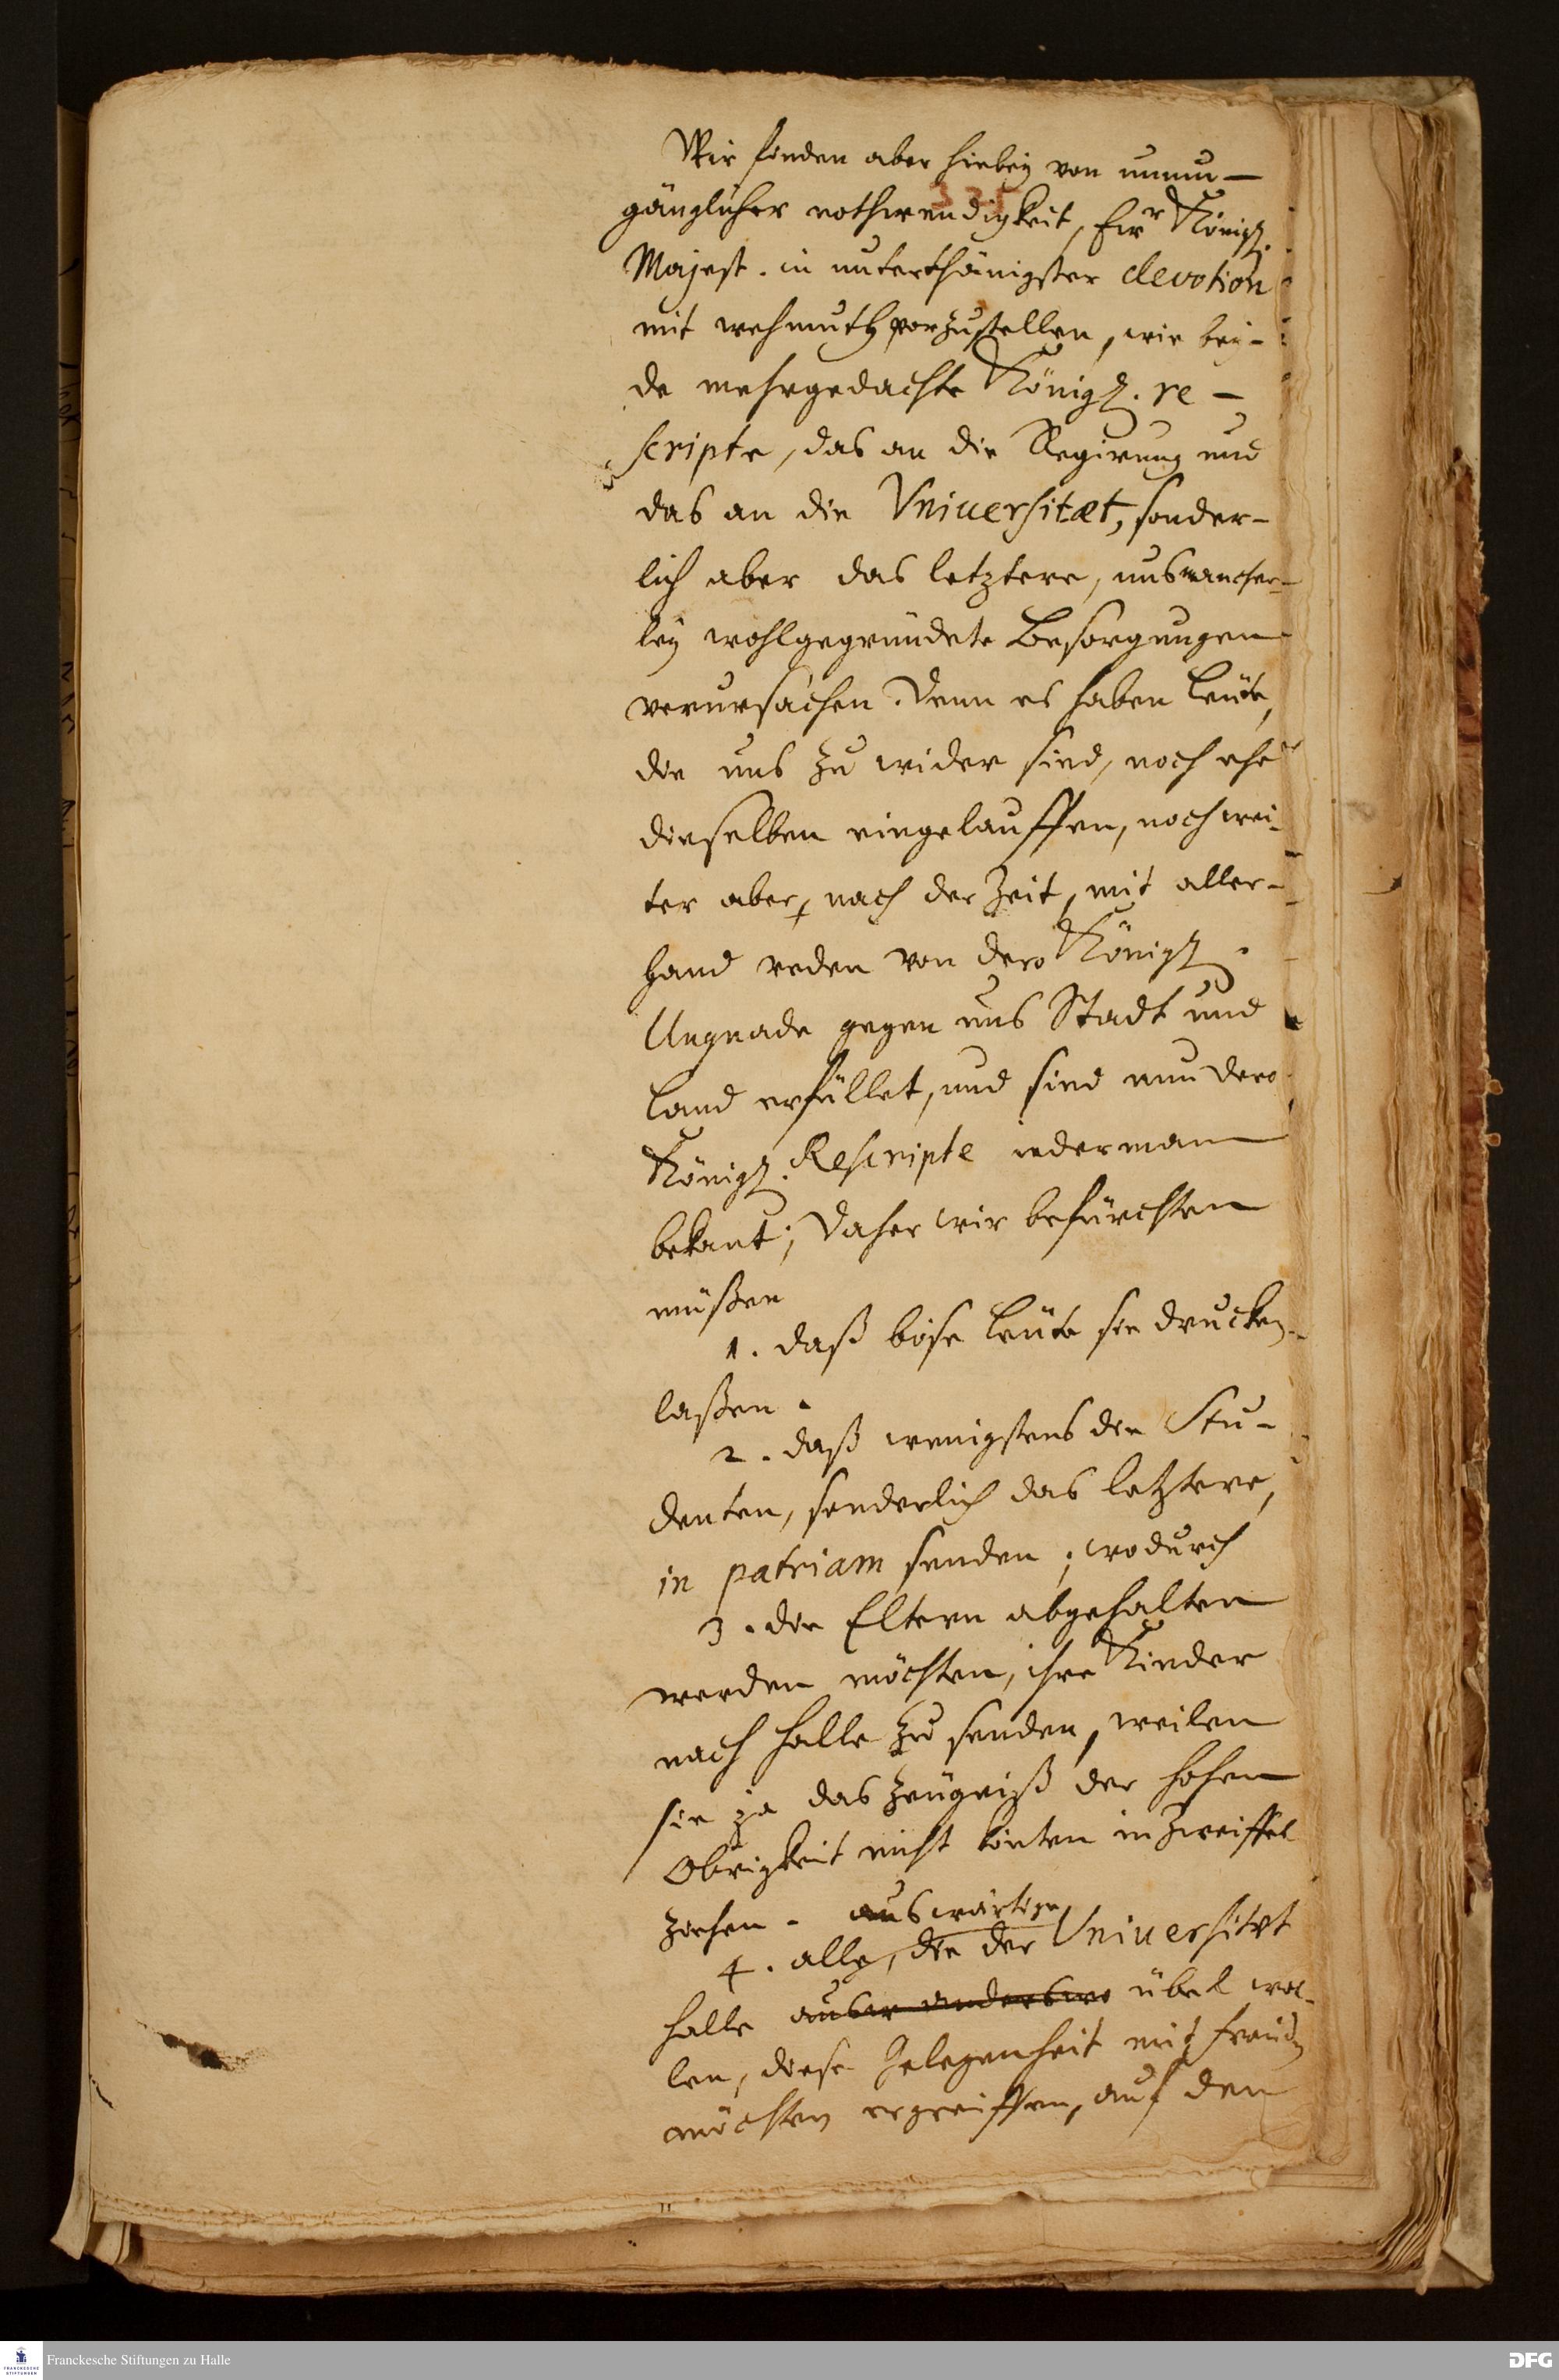 Wir finden aber hiebey von unum-
325
gänglicher nothwendigkeit, Ewr Königl.
Majest. in unterthänigster devotion
mit wehmuth vorzustellen, wie bey-
de mehrgedachte Königl. re-
scripte, das an die Regirung und
das an die Vniuersitæt, sonder-
lich aber das letztere, uns mancher-
ley wohlgegründete Besorgungen
verursachen. Denn es haben Leute,
die uns zu wider sind, noch ehe
dieselben eingelauffen, noch wei-
ter aber, nach der Zeit, mit aller-
hand reden von dero Königl.
Ungnade gegen uns Stadt und
Land erfüllet, und sind nun dero
Königl. Rescripte iederman
bekant; Daher wir befürchten
müßen
1. daß böse Leute sie drucken
laßen.
2. daß wenigstens die Stu-
denten, sonderlich das letztere,
in patriam senden; wodurch
3. die Eltern abgehalten
werden möchten, ihre Kinder
nach Halle zu senden, weilen
sie ja das Zeugniß der hohen
Obrigkeit nicht könten in Zweiffel
ziehen. auswärtige
4. alle, die der Vniuersitet
Halle anderswo übel wol-
len, diese Gelegenheit mit freuden
möchten ergreiffen, auf den
Franckesche Stiftungen zu Halle
DFG